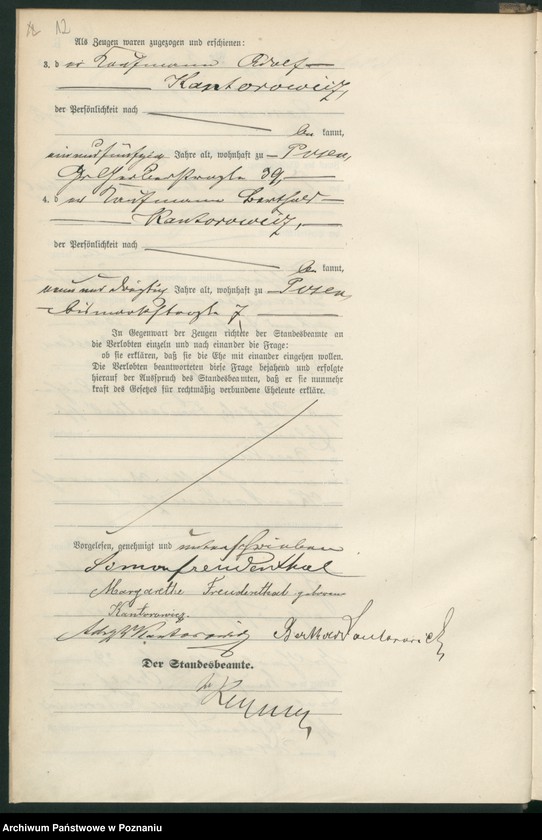 12
Als Zeugen waren zugezogen und erschienen:
3. der Kaufmann Adolf
Kantorowicz,
der Persönlichkeit nach
be kannt,
einundfünfzig Jahre alt, wohnhaft zu Posen,
Gr. Gerberstraße 39,
4. der Kaufmann Berthold
Kantorowicz,
der Persönlichkeit nach
be kannt,
neun und dreißig Jahre alt, wohnhaft zu Posen,
Bismarckstraße 7
In Gegenwart der Zeugen richtete der Standesbeamte an
die Verlobten einzeln und nach einander die Frage:
ob sie erklären, daß sie die Ehe mit einander eingehen wollen.
Die Verlobten beantworteten diese Frage bejahend und erfolgte
hierauf der Ausspruch des Standesbeamten, daß er sie nunmehr
kraft des Gesetzes für rechtmäßig verbundene Eheleute erkläre.
Vorgelesen, genehmigt und unterschrieben
Simon Freudenthal
Margarethe Freudenthal geborene
Kantorowicz.
Adolf Kantorowicz Berthold Kantorowicz
Der Standesbeamte.
Archiwum Państwowe w Poznaniu